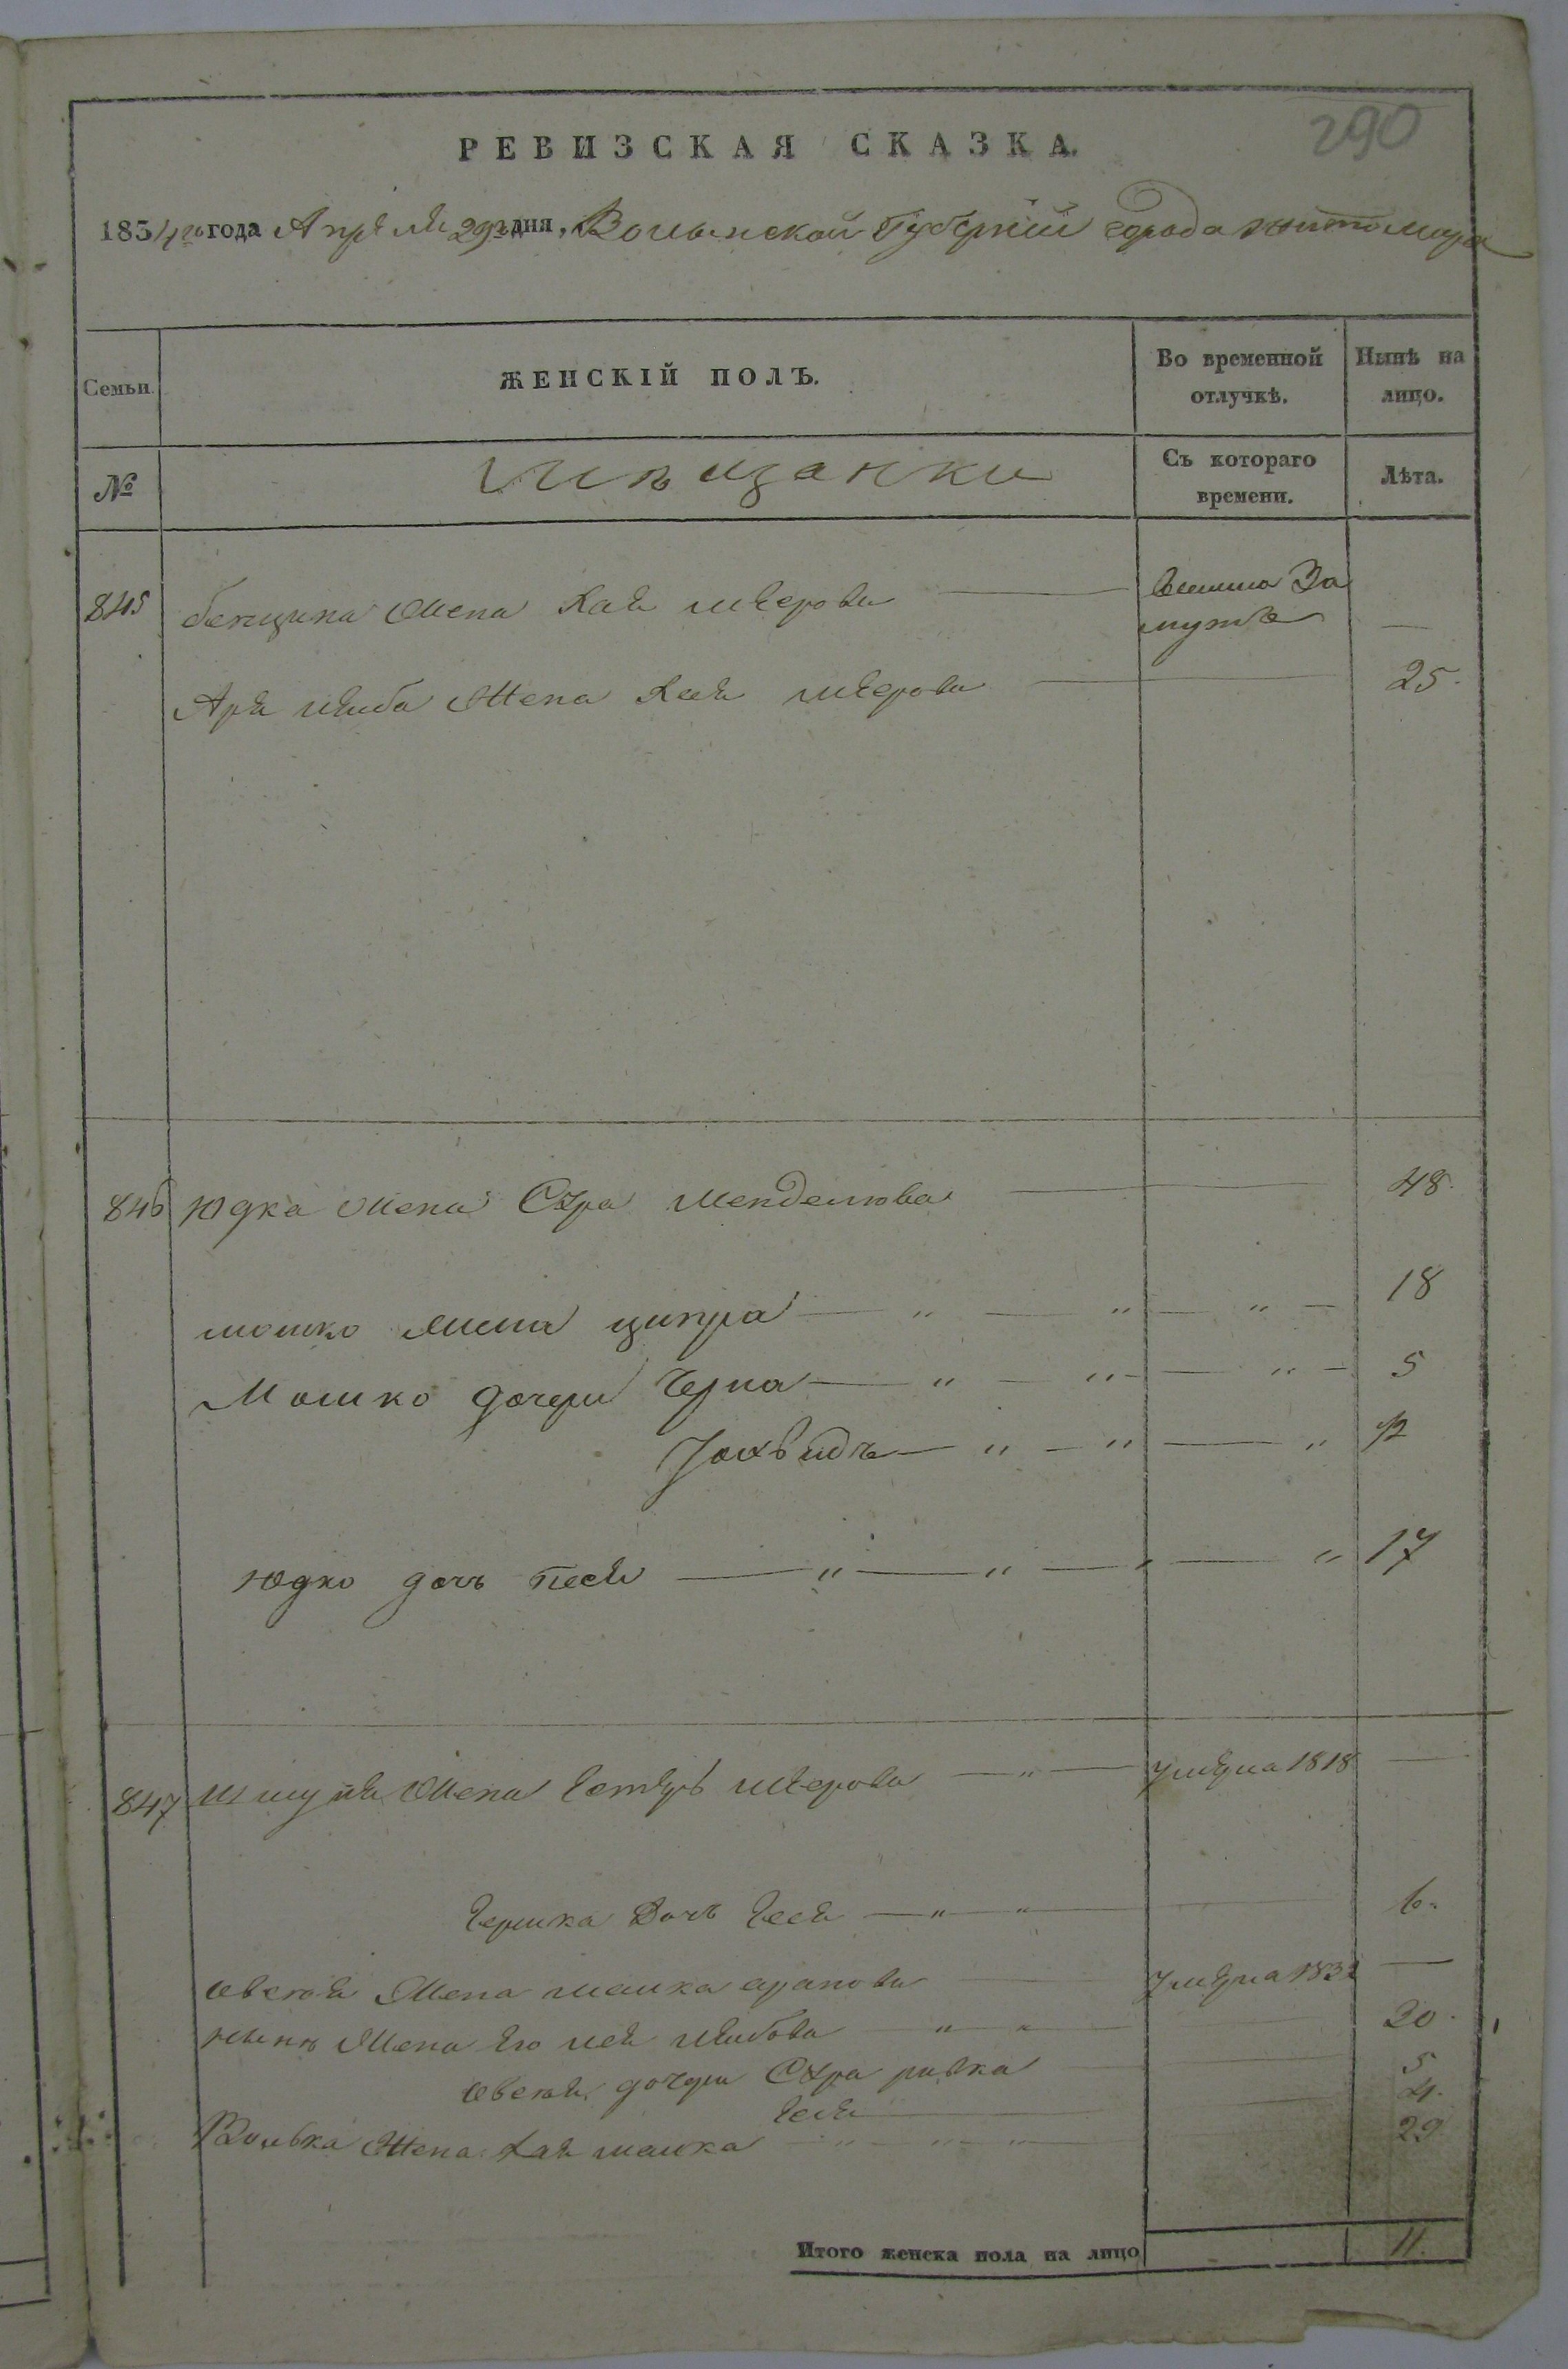 290
РЕВИЗСКАЯ СКАЗКА.
1834го года Апреля 29го дня, Волынской Губернии города Житомира
Семьи. ЖЕНСКІЙ ПОЛЪ. Во временной отлучкѣ. Нынѣ на лицо.
№ Мѣщанки Съ котораго времени. Лѣта.
845 Жена Хая Меерова Вышла За мужъ —
Аря Лейба Жена Меерова 25.
846 Юдка Жена Сура Менделова 48.
Мошко Жена Ципра — " — " — " — 18
Мошко дочери Черна — " — " — " — 5
Иохвидъ — " — " — " 1/2
Юдко дочь Песя — " — " — " 17
847 Шмуля Жена Естеръ Меерова — " — умерла 1818 —
Гершка Дочь — " " — 6.
Овсея Жена Малка умерла 1831 —
Нынѣ Жена его Лея Лейбова — " " — 20.
Овсея дочери Сура Ривка 5
4.
Вольвка Жена Хая Малка — " — " — " — 29
Итого женска пола на лицо 11.